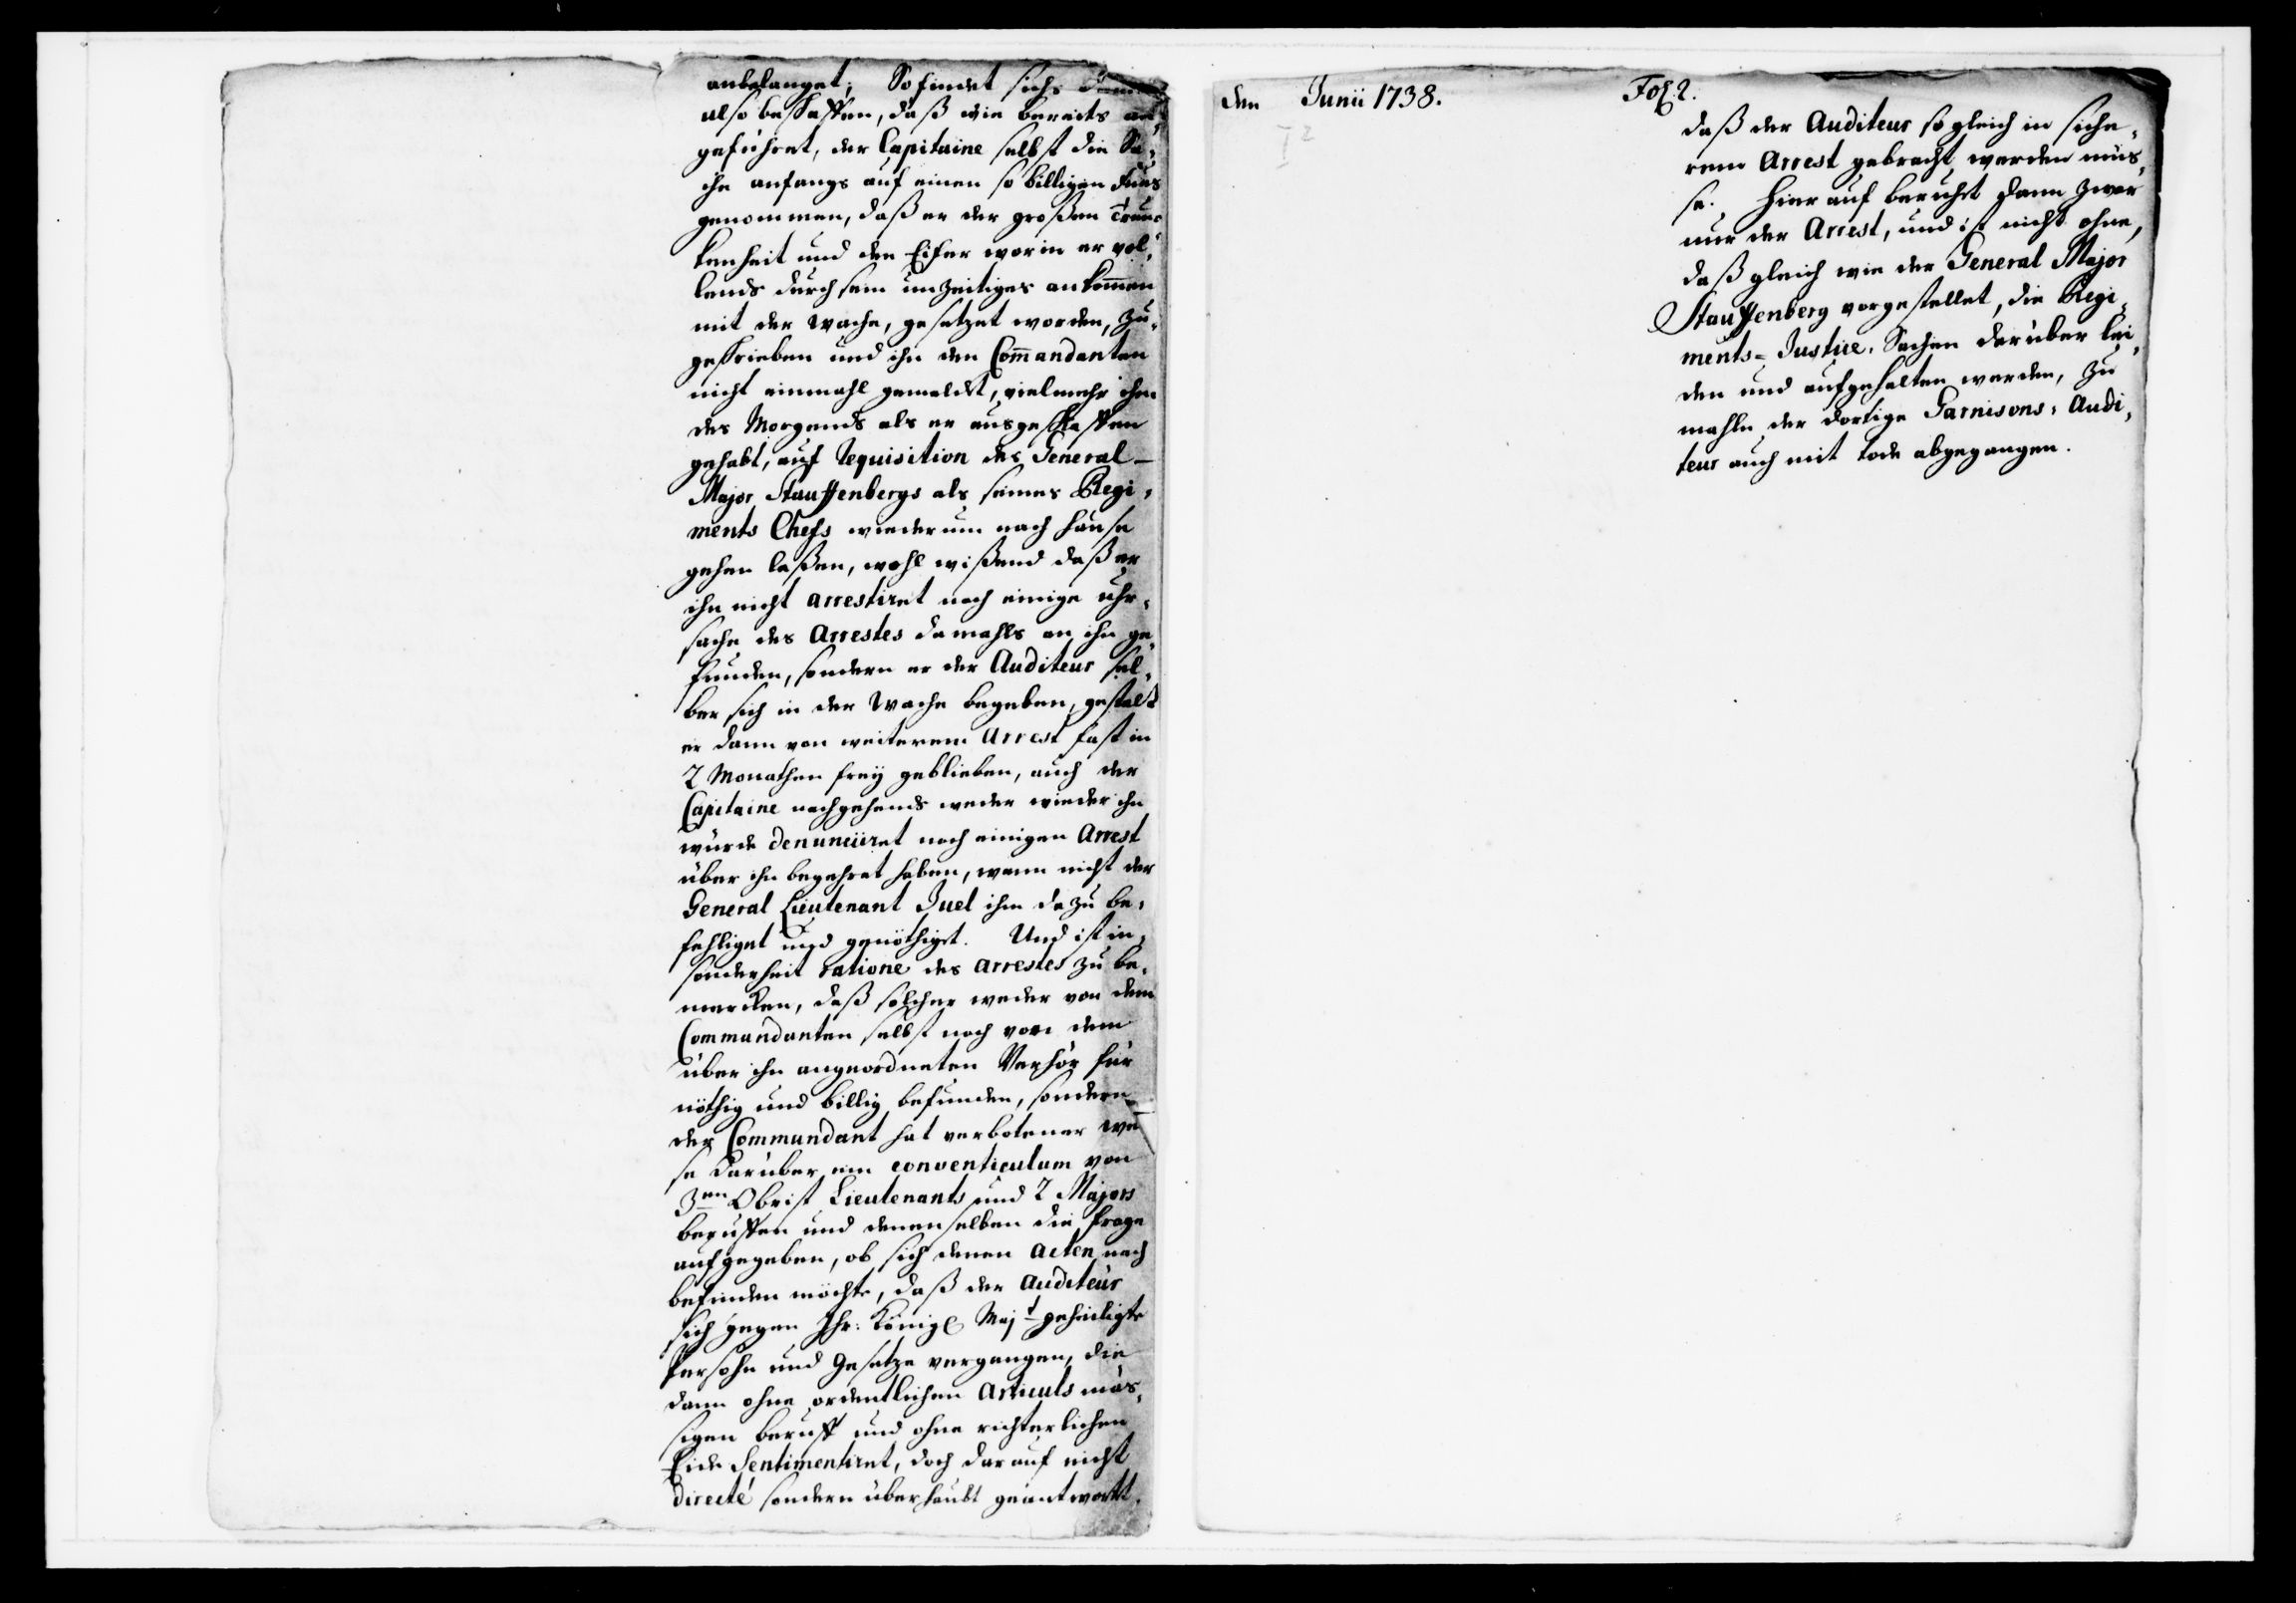 anbelanget; So findet sichs
also beschaffen, daß wie bereits an¬
geführet, der Capitaine selbst die Sa¬
che anfangs auf einen so billigen Fues
genommen, daß er der großen Trunc¬
kenheit und den Eifer worin er vol¬
lends durch sein unzeitiges ankom̄en
mit der Wache, gesetzet worden, zu¬
geschrieben und ihn den Com̄andanten
nicht einmahl gemeldt, vielmehr ihm
des Morgends als er ausgeschlaffen
gehabt, auf requisition des General-
Major Stauffenbergs als seines Regi¬
ments Chefs wiederum nach hause
gehen laßen, wohl wißend daß er
ihn nicht arrestiret noch einige Uhr¬
sache des Arrestes damahls an ihn ge¬
funden, sondern er der Auditeur sel¬
ber sich in der Wache begeben, gestalt
er dann von weiterem Arrest fast in
2 Monathen freÿ geblieben, auch der
Capitaine nachgehends weder wieder ihn
würde denunciiret noch einigen Arrest
über ihn begehret haben, wann nicht der
General Lieutenant Juel ihm dazu be¬
fehliget und genöthiget. Und ist in¬
sonderheit ratione des arrestes zu be¬
mercken, daß solcher weder von dem
Commandanten selbst noch von dem
über ihn angeordneten Verhör für
nöthig und billig befunden, sondern
der Commandant hat verbotener wei
se darüber ein conventiculum von
3en Obrist Lieutenants und 2 Majors
beruffen und denenselben die frage
aufgegeben, ob sich denen Acten nach
befinden möchte, daß der Auditeur
sich gegen Ihr: Königl Majt geheiligte
Persohn und Gesetze vergangen, die
dann ohne ordentlichen Articuls mäs¬
sigen beruff und ohne richterlichen
Eide Sentimentiret, doch darauf nicht
directé sondern überhaubt geantwortt.
den Junii 1738.
Fol. 2.
I 2
daß der Auditeur so gleich in siche¬
rem Arrest gebracht werden müs¬
se. Hierauf beruhet dann zwar
nur der Arrest, und ist nicht ohne,
daß gleich wie der General Major
Stauffenberg vorgestellet, die Regi¬
ments=Justice-Sachen darüber lei¬
den und aufgehalten werden, zu
mahln der dortige Garnisons-Audi¬
teur auch mit Tode abgegangen.